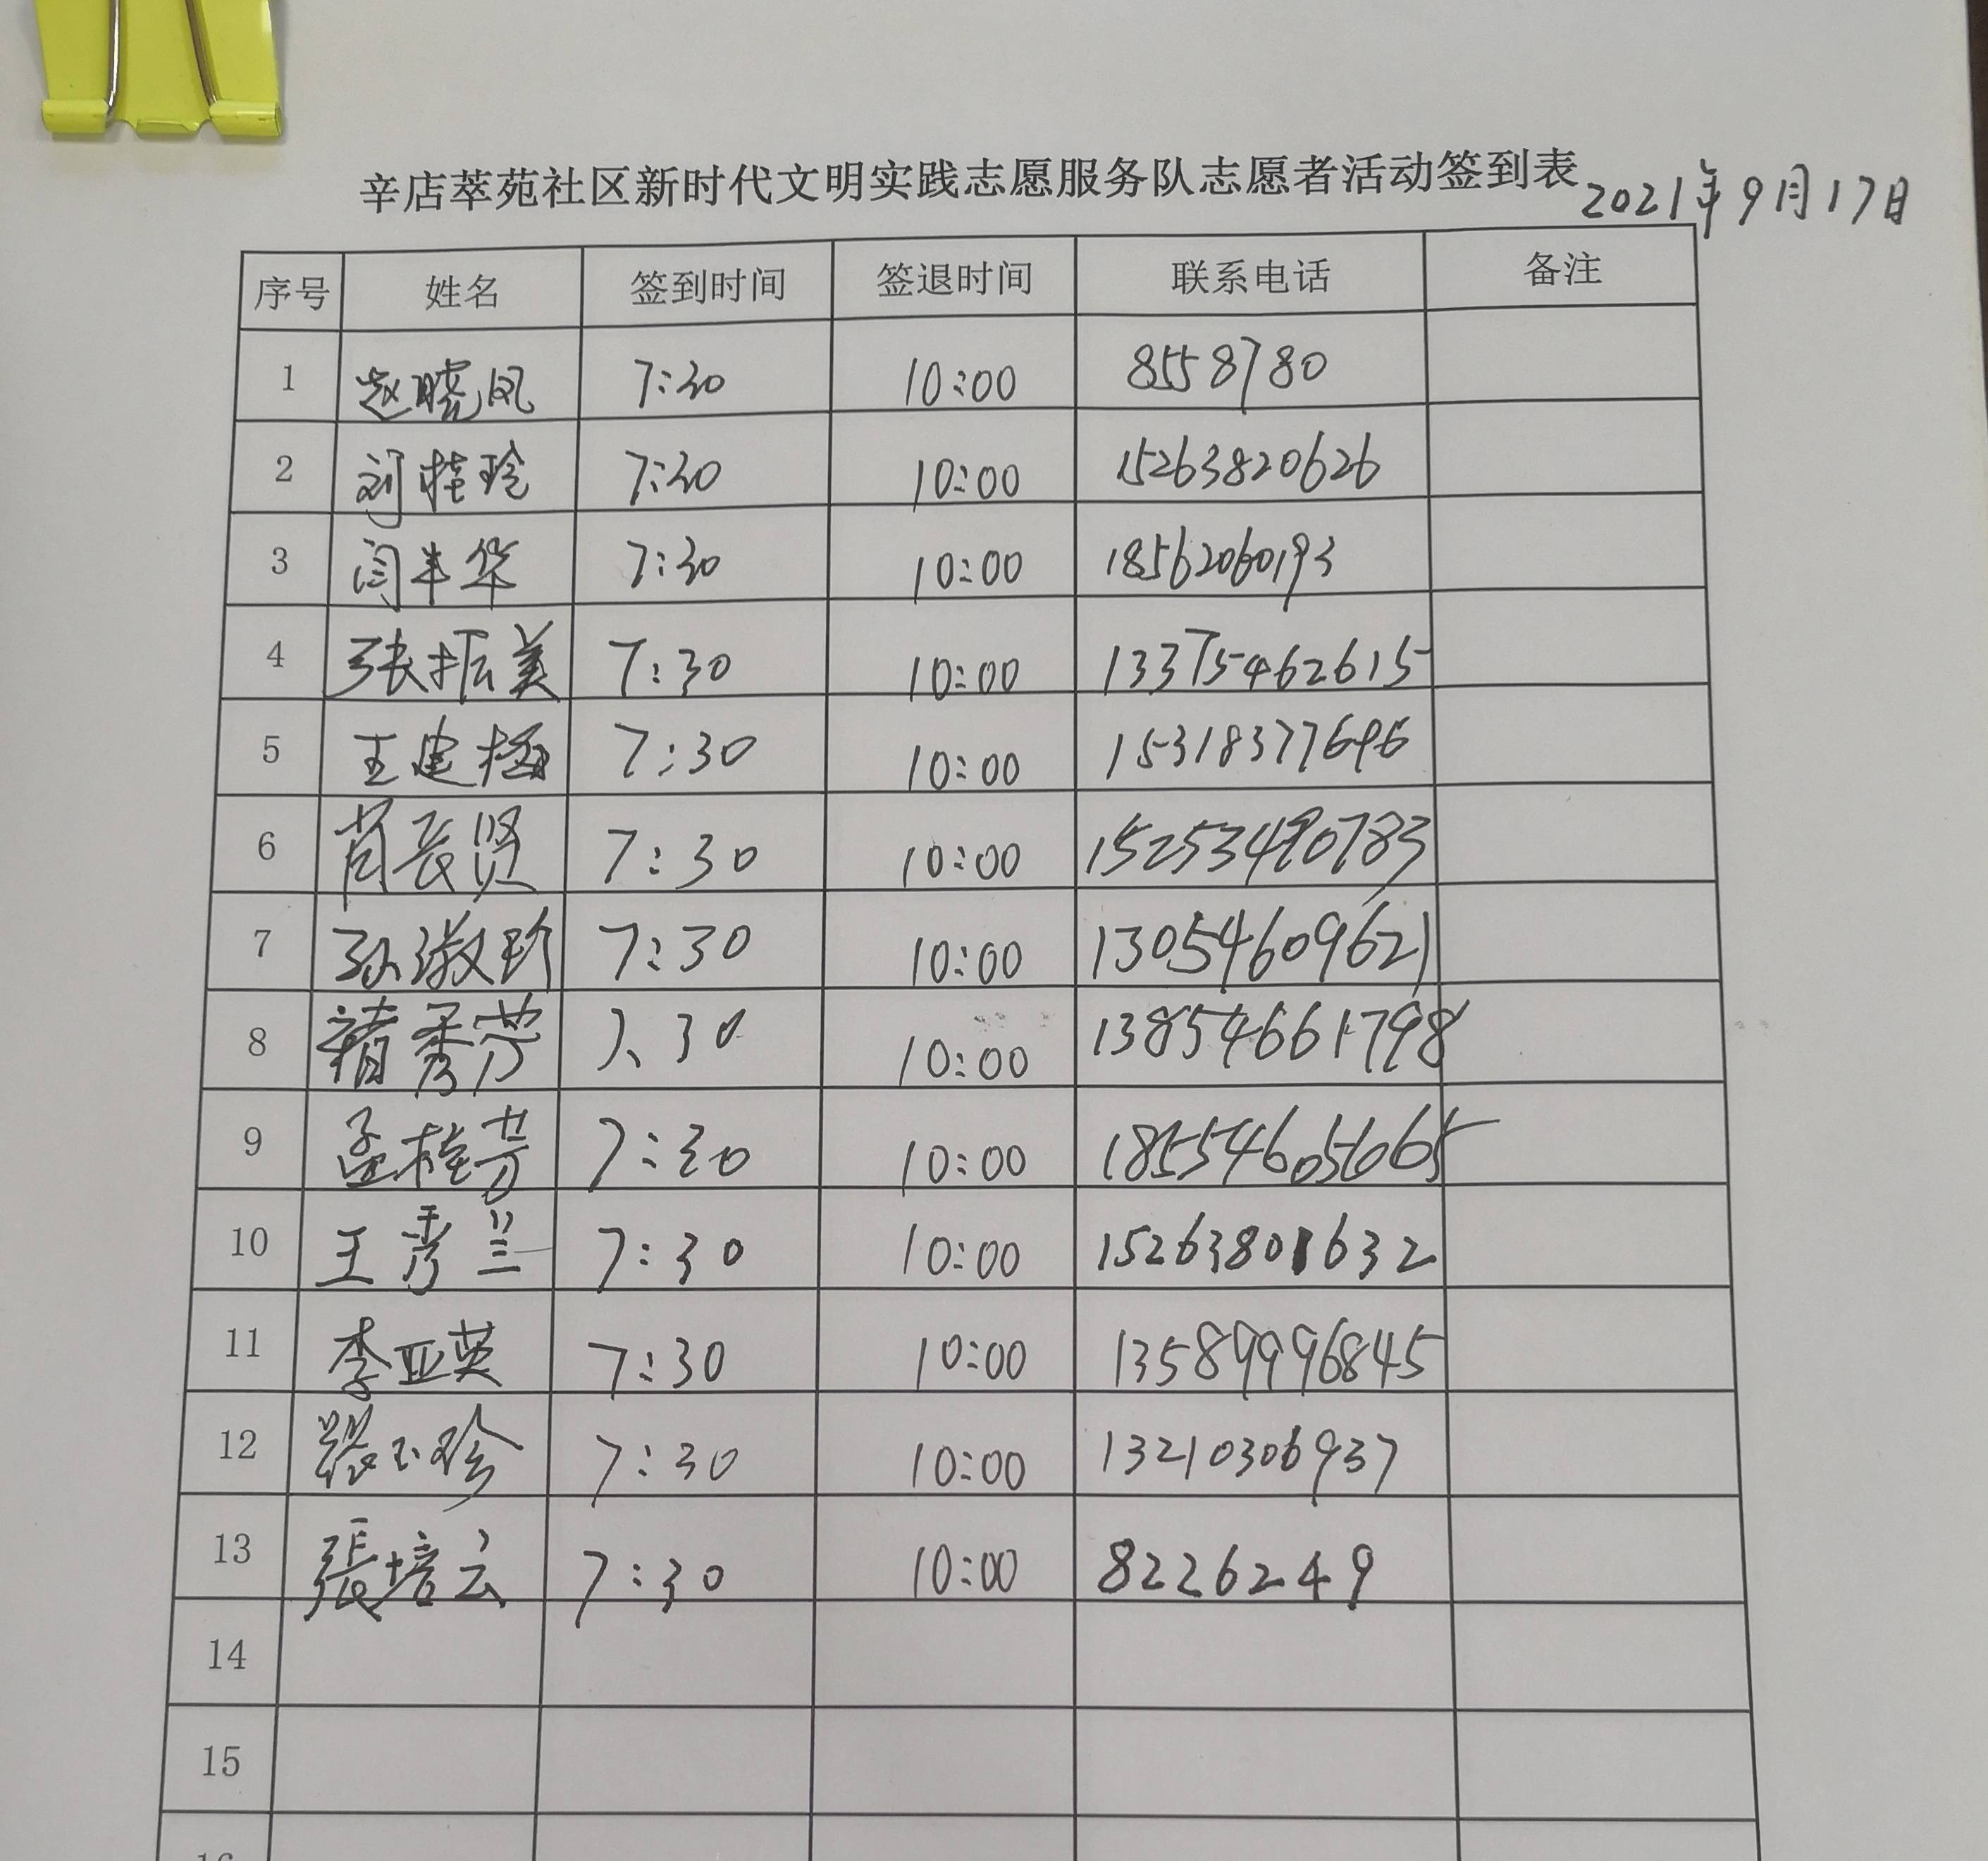 辛店萃苑社区新时代文明实践志愿服务队志愿者活动签到表 2021年9月17日
序号 姓名 签到时间 签退时间 联系电话 备注
1 赵晓凤 7:30 10:00 8558780
2 刘桂玲 7:30 10:00 15263820626
3 闫丰华 7:30 10:00 18562060193
4 张振美 7:30 10:00 13375462615
5 王建梅 7:30 10:00 15318377696
6 肖长贤 7:30 10:00 15253490783
7 孙淑珍 7:30 10:00 13054609621
8 褚秀芳 7:30 10:00 13854661798
9 孟桂芳 7:30 10:00
10 王秀兰 7:30 10:00 15263801632
11 李亚英 7:30 10:00 13589996845
12 张玉珍 7:30 10:00 13210306937
13 張培云 7:30 10:00 8226249
14
15